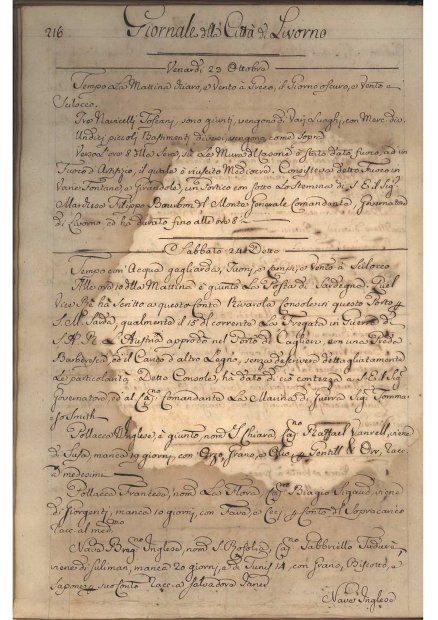 216 Giornale della Città di Livorno
Venardi 23 Ottobre
Tempo La Mattina chiaro, e Vento à Greco, il Giorno oscuro, e Vento e
Scilocco.
Tre Navicelli Toscani, sono giunti, vengono da Varj Luoghi, con Merc. div.
Undici piccoli Bastimenti diversi, vengono come Sopra
Verso l'ore 8 della Sera, su Le Mura del Casone è stato dato fuoco, ad un
Fuoco d'Artifizio, il quale è riescito Mediocre. Consisteva detto Fuoco in
Varie Fontane, e Girandole, un Portico con sotto Lo Stemma di S. E. il Sig.
Marchese Filippo Bourbon del Monte Generale Comandante, e Governatore
di Livorno, ed ha durato fino alle ore 8
Sabbato 24 Detto
Tempo con Acqua gagliarda, Tuoni, e Lampi, e Vento à Scilocco
Alle ore 10 della Mattina è giunto La Posta di Sardegna. Quel
Vice Rè hà scritto a questo Conte Rivarola Console in questo Porto p
S. M. Sarda, qualmente il 15 del corrente La Fregata in Guerra di
S. A. R. L'Austria approdò nel Porto di Cagliari, con una Preda
Barbaresca, ed il Carico d'altro Legno, senza descrivere dettagliatamente
Le particolarità. Detto Console, hà dato di ciò contezza a S. E. il Sig.
Governatore, ed al Cap.no Comandante La Marina di Guerra Sig. Tomma-
so Smith
Pollacca Inglese, è giunto, nom. S. Chiara, Cap.no Raffael Vanrell, viene
di Susa, manca 19 giorni, con Orzo, Grano, e Olio p Gentill & Orr, Racc.
D medesimi
Pollacca Francese, nom. La Flora, Cap.no Biagio Sigaud, viene
di Giorgenti, manca 10 giorni, con Fava, e Ceci, p Conto del Sopracarico
racc. al med.mo
Nave Brig.no Inglese, nom. S. Rosolia, Cap.no Gabbriello
viene di manca 20 giorni, e da Tunis 14, con Grano, Biscotto, e
Sapone p suo Conto racc. a Salvadore
Nave Inglese